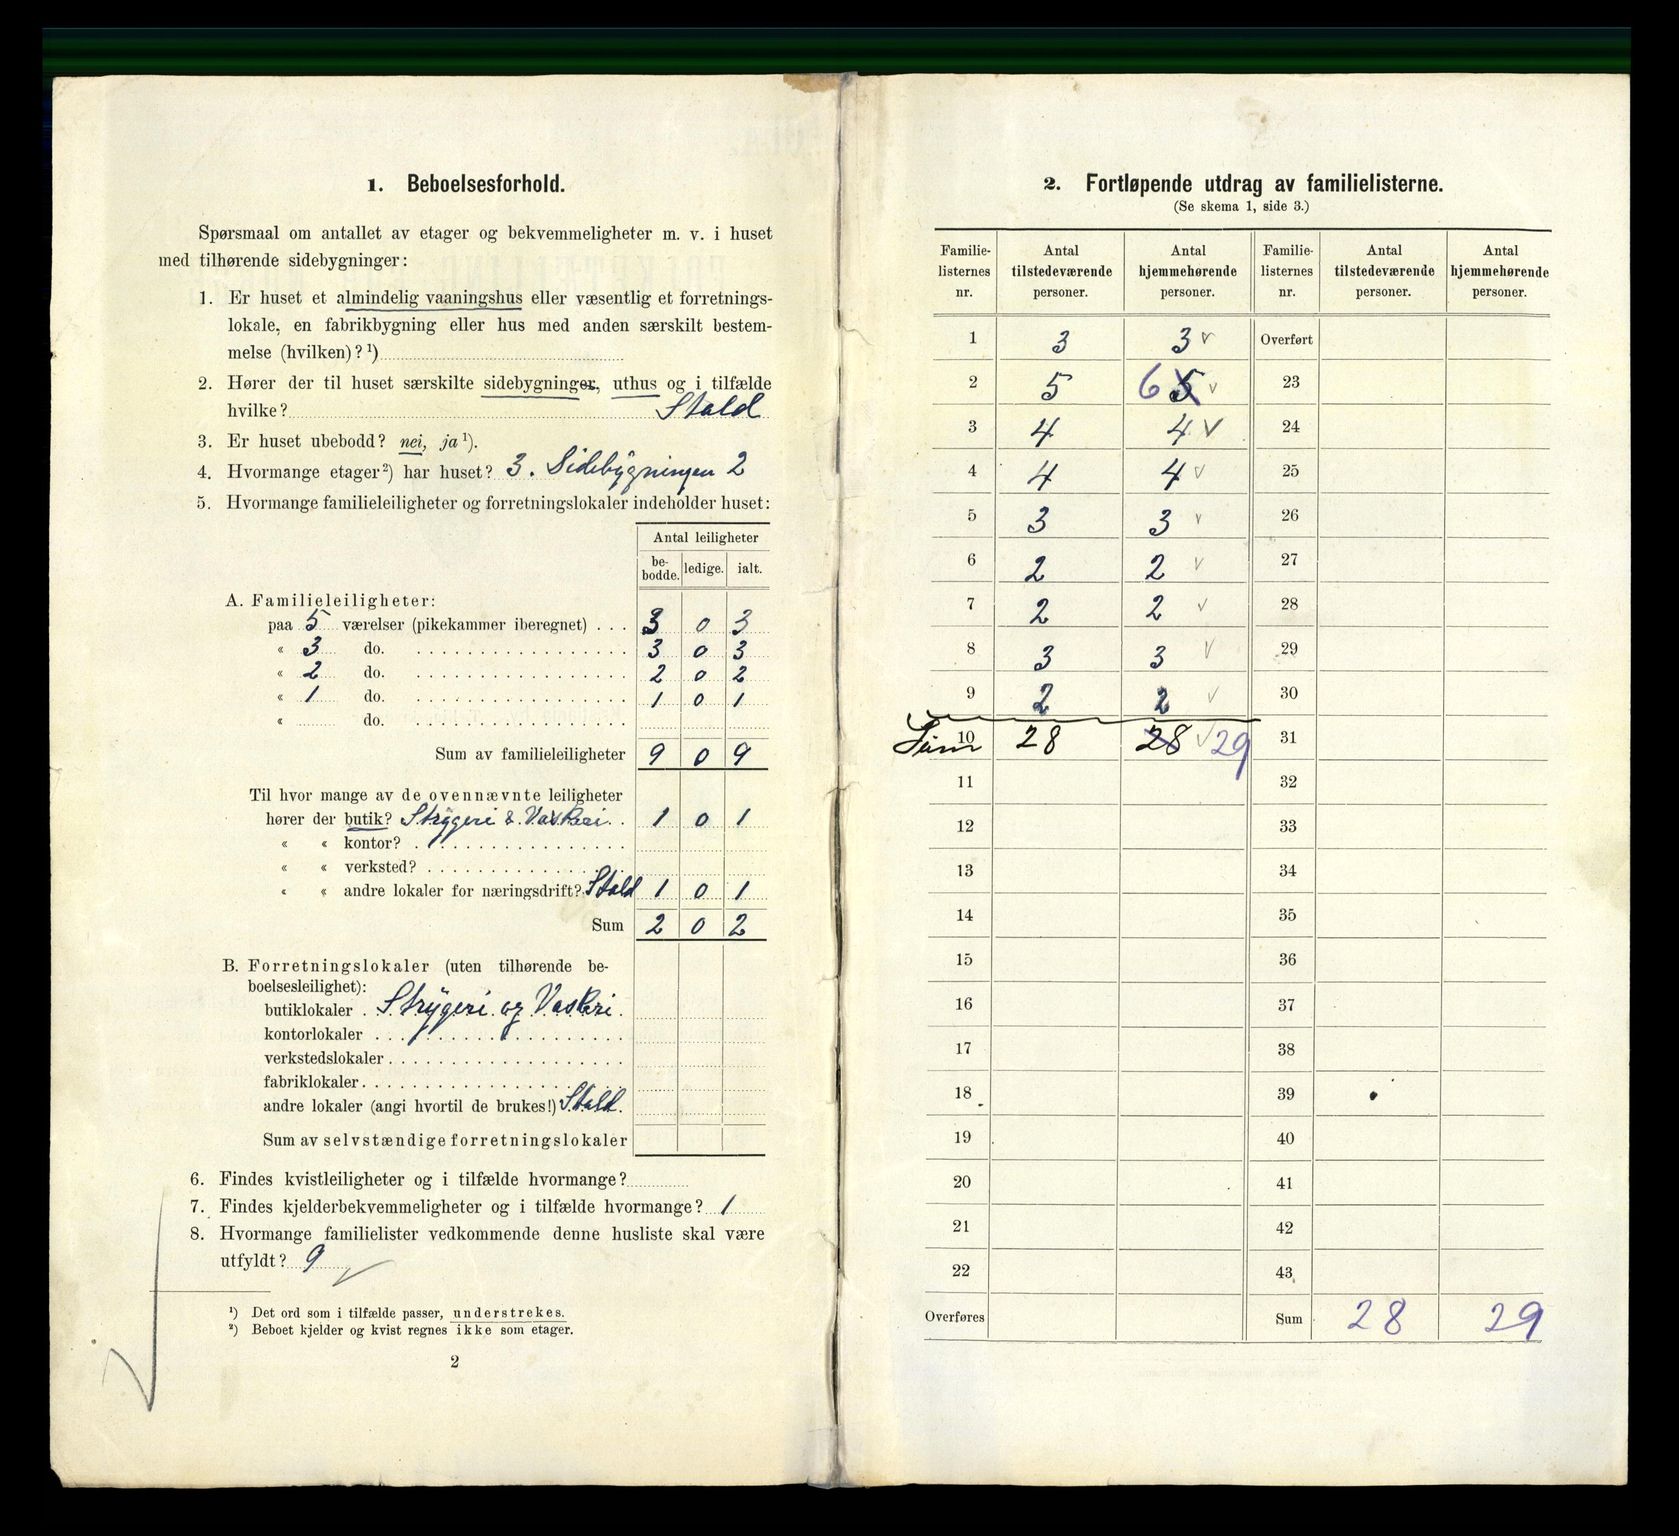 1. Beboelsesforhold.
Spørsmaal om antallet av etager og bekvemmeligheter m. v. i huset
med tilhørende sidebygninger:
1. Er huset et almindelig vaaningshus eller væsentlig et forretnings-
lokale, en fabrikbygning eller hus med anden særskilt bestem-
melse (hvilken)? ¹)
2. Hører der til huset særskilte sidebygninger, uthus og i tilfælde
hvilke? Stald
3. Er huset ubebodd? nei, ja ¹).
4. Hvormange etager ²) har huset? 3. Sidebygningen 2
5. Hvormange familieleiligheter og forretningslokaler indeholder huset:
Antal leiligheter
be-bodde. ledige. ialt.
A. Familieleiligheter:
paa 5 værelser (pikekammer iberegnet) . . . 3 0 3
« 3 do. 3 0 3
« 2 do. 2 0 2
« 1 do. 1 0 1
« do.
Sum av familieleiligheter 9 0 9
Til hvor mange av de ovennævnte leiligheter
hører der butik? Strygeri & Vaskeri 1 0 1
« « kontor?
« « verksted?
« « andre lokaler for næringsdrift? Stald 1 0 1
Sum 2 0 2
B. Forretningslokaler (uten tilhørende be-
boelsesleilighet):
butiklokaler . Strygeri og Vaskeri.
kontorlokaler
verkstedslokaler
fabriklokaler
andre lokaler (angi hvortil de brukes!) Stald.
Sum av selvstændige forretningslokaler
6. Findes kvistleiligheter og i tilfælde hvormange?
7. Findes kjelderbekvemmeligheter og i tilfælde hvormange? 1
8. Hvormange familielister vedkommende denne husliste skal være
utfyldt? 9
¹) Det ord som i tilfælde passer, understrekes.
²) Beboet kjelder og kvist regnes ikke som etager.
2
2. Fortløpende utdrag av familielisterne.
(Se skema 1, side 3.)
Familie-listernes nr. Antal tilstedeværende personer. Antal hjemmehørende personer. Familie-listernes nr. Antal tilstedeværende personer. Antal hjemmehørende personer.
1 3 3 Overført
2 5 6 5 23
3 4 4 24
4 4 4 25
5 3 3 26
6 2 2 27
7 2 2 28
8 3 3 29
9 2 2 30
Sum 10 28 28 29 31
11 32
12 33
13 34
14 35
15 36
16 37
17 38
18 39
19 40
20 41
21 42
22 43
Overføres Sum 28 29